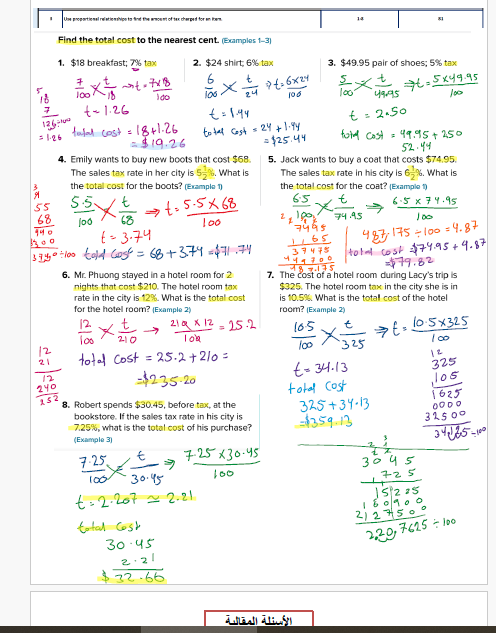 5 Use proportional relationships to find the amount of tax charged for an item. 1-8 81
Find the total cost to the nearest cent. (Examples 1–3)
1. $18 breakfast; 7% tax
7/100 × t/18 → t = 7×18/100
t = 1.26
total cost = 18+1.26
= $19.26
2. $24 shirt; 6% tax
6/100 × t/24 → t = 6×24/100
t = 1.44
total cost = 24 + 1.44
= $25.44
3. $49.95 pair of shoes; 5% tax
5/100 × t/49.95 → t = 5×49.95/100
t = 2.50
total cost = 49.95 + 2.50
52.44
4. Emily wants to buy new boots that cost $68.
The sales tax rate in her city is 5½%. What is
the total cost for the boots? (Example 1)
5.5/100 × t/68 ⇒ t = 5.5×68/100
t = 3.74
total cost = 68 + 3.74 = $71.74
5. Jack wants to buy a coat that costs $74.95.
The sales tax rate in his city is 6½%. What is
the total cost for the coat? (Example 1)
6.5/100 × t/74.95 ⇒ 6.5 × 74.95/100
487.175 ÷ 100 = 4.87
total cost = $74.95 + 4.87
= $79.82
6. Mr. Phuong stayed in a hotel room for 2
nights that cost $210. The hotel room tax
rate in the city is 12%. What is the total cost
for the hotel room? (Example 2)
12/100 × t/210 → 210 × 12/100 = 25.2
total cost = 25.2 + 210 =
= $235.20
7. The cost of a hotel room during Lacy's trip is
$325. The hotel room tax in the city she is in
is 10.5%. What is the total cost of the hotel
room? (Example 2)
10.5/100 × t/325 ⇒ t = 10.5×325/100
t = 34.13
total cost
325 + 34.13
= $359.13
325
105
1625
0000
32500
34,125 ÷ 100
8. Robert spends $30.45, before tax, at the
bookstore. If the sales tax rate in his city is
7.25%, what is the total cost of his purchase?
(Example 3)
7.25/100 = t/30.45 ⇒ 7.25 × 30.45/100
t = 2.207 ≃ 2.21
total cost
30.45
2.21
$ 32.66
3045
725
15225
60900
2131500
220.7625 ÷ 100
الأسئلة المقالية